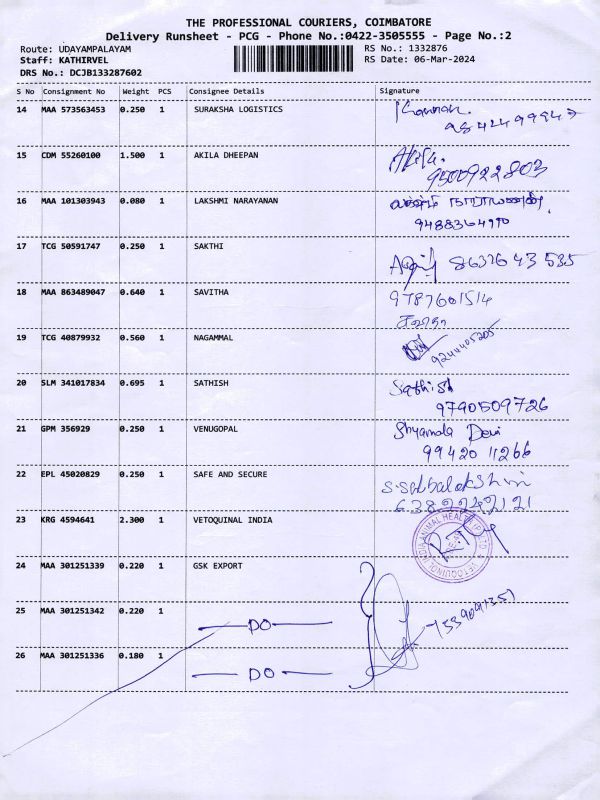 THE PROFESSIONAL COURIERS, COIMBATORE
Delivery Runsheet - PCG - Phone No.:0422-3505555 - Page No.:2
Route: UDAYAMPALAYAM
RS No.: 1332876
Staff: KATHIRVEL
RS Date: 06-Mar-2024
DRS No.: DCJB133287602
S No Consignment No Weight PCS Consignee Details Signature
14 MAA 573563453 0.250 1 SURAKSHA LOGISTICS
15 CDM 55260100 1.500 1 AKILA DHEEPAN Akila.
9500922803
16 MAA 101303943 0.080 1 LAKSHMI NARAYANAN
9488364990
17 TCG 50591747 0.250 1 SAKTHI 8637643535
18 MAA 863489047 0.640 1 SAVITHA 9787601514
19 TCG 40879932 0.560 1 NAGAMMAL 9244405205
20 SLM 341017834 0.695 1 SATHISH Sathish
9790509726
21 GPM 356929 0.250 1 VENUGOPAL Shyamala Devi
99420 11266
22 EPL 45020829 0.250 1 SAFE AND SECURE
23 KRG 4594641 2.300 1 VETOQUINAL INDIA
24 MAA 301251339 0.220 1 GSK EXPORT
25 MAA 301251342 0.220 1 DO
26 MAA 301251336 0.180 1 DO